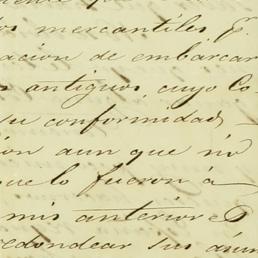 os mercantiles y.
acion de embarcar
s antiguos, cuyo Co-
su conformidad
ion aun que no
que lo fueron á
mis anteriores
redondear sus asun